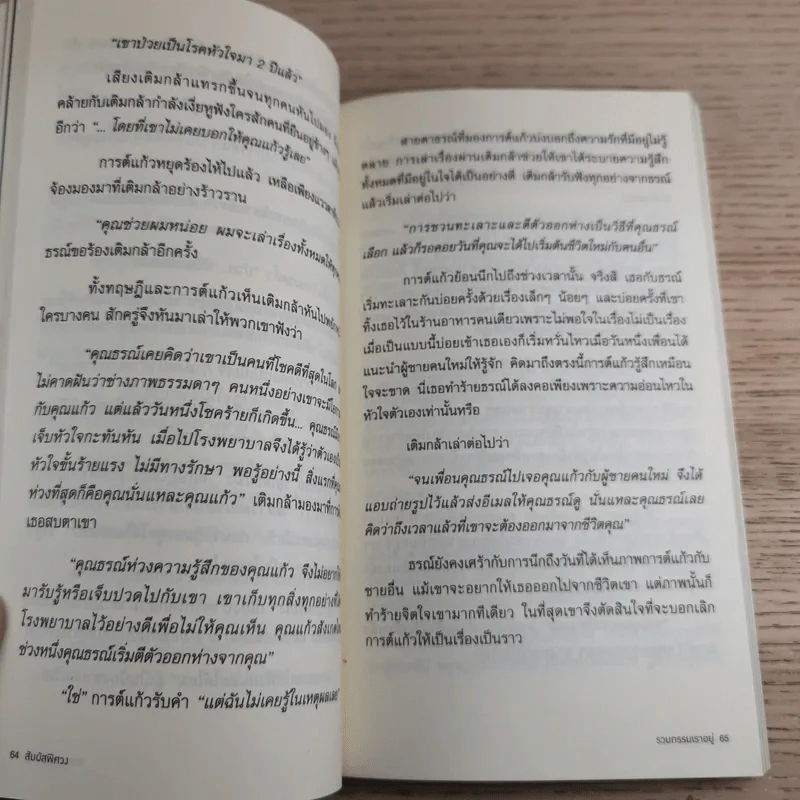 “เขาป่วยเป็นโรคหัวใจมา 2 ปีแล้ว”
เสียงเติมกล้าแทรกขึ้นจนทุกคนหันไปมอง
คล้ายกับเติมกล้ากำลังเงี่ยหูฟังใครสักคนที่ยืนอยู่ข้างๆ
อีกว่า “... โดยที่เขาไม่เคยบอกให้คุณแก้วรู้เลย”
การต์แก้วหยุดร้องไห้ไปแล้ว เหลือเพียง
จ้องมองมาที่เติมกล้าอย่างร้าวราน
“คุณช่วยผมหน่อย ผมจะเล่าเรื่องทั้งหมดให้
ธรณ์ขอร้องเติมกล้าอีกครั้ง
ทั้งทฤษฎีและการต์แก้วเห็นเติมกล้าหันไป
ใครบางคน สักครู่จึงหันมาเล่าให้พวกเขาฟังว่า
“คุณธรณ์เคยคิดว่าเขาเป็นคนที่โชคดีที่สุดในโลก
ไม่คาดฝันว่าช่างภาพธรรมดาๆ คนหนึ่งอย่างเขาจะมี
กับคุณแก้ว แต่แล้ววันหนึ่งโชคร้ายก็เกิดขึ้น... คุณธรณ์
เจ็บหัวใจกะทันหัน เมื่อไปโรงพยาบาลจึงได้รู้ว่าตัวเอง
หัวใจขั้นร้ายแรง ไม่มีทางรักษา พอรู้อย่างนี้ สิ่งแรกที่
ห่วงที่สุดก็คือคุณนั่นแหละคุณแก้ว” เติมกล้ามองมาที่
เธอสบตาเขา
“คุณธรณ์ห่วงความรู้สึกของคุณแก้ว จึงไม่อยาก
มารับรู้หรือเจ็บปวดไปกับเขา เขาเก็บทุกสิ่งทุกอย่าง
โรงพยาบาลไว้อย่างดีเพื่อไม่ให้คุณเห็น คุณแก้ว
ช่วงหนึ่งคุณธรณ์เริ่มตีตัวออกห่างจากคุณ”
“ใช่” การต์แก้วรับคำ “แต่ฉันไม่เคยรู้ในเหตุผลเลย”
64 สัมผัสพิศวง
สายตาธรณ์ที่มองการต์แก้วบ่งบอกถึงความรักที่มีอยู่ไม่รู้
คลาย การเล่าเรื่องผ่านเติมกล้าช่วยให้เขาได้ระบายความรู้สึก
ทั้งหมดที่มีอยู่ในใจได้เป็นอย่างดี เติมกล้ารับฟังทุกอย่างจากธรณ์
แล้วเริ่มเล่าต่อไปว่า
“การชวนทะเลาะและตีตัวออกห่างเป็นวิธีที่คุณธรณ์
เลือก แล้วก็รอคอยวันที่คุณจะได้ไปเริ่มต้นชีวิตใหม่กับคนอื่น”
การต์แก้วย้อนนึกไปถึงช่วงเวลานั้น จริงสิ เธอกับธรณ์
เริ่มทะเลาะกันบ่อยครั้งด้วยเรื่องเล็กๆ น้อยๆ และบ่อยครั้งที่เขา
ทิ้งเธอไว้ในร้านอาหารคนเดียวเพราะไม่พอใจในเรื่องไม่เป็นเรื่อง
เมื่อเป็นแบบนี้บ่อยเข้าเธอเองก็เริ่มหวั่นไหวเมื่อวันหนึ่งเพื่อนได้
แนะนำผู้ชายคนใหม่ให้รู้จัก คิดมาถึงตรงนี้การต์แก้วรู้สึกเหมือน
ใจจะขาด นี่เธอทำร้ายธรณ์ได้ลงคอเพียงเพราะความอ่อนไหวใน
หัวใจตัวเองเท่านั้นหรือ
เติมกล้าเล่าต่อไปว่า
“จนเพื่อนคุณธรณ์ไปเจอคุณแก้วกับผู้ชายคนใหม่ จึงได้
แอบถ่ายรูปไว้แล้วส่งอีเมลให้คุณธรณ์ดู นั่นแหละคุณธรณ์เลย
คิดว่าถึงเวลาแล้วที่เขาจะต้องออกมาจากชีวิตคุณ”
ธรณ์ยังคงเศร้ากับการนึกถึงวันที่ได้เห็นภาพการต์แก้วกับ
ชายอื่น แม้เขาจะอยากให้เธอออกไปจากชีวิตเขา แต่ภาพนั้นก็
ทำร้ายจิตใจเขามากทีเดียว ในที่สุดเขาจึงตัดสินใจที่จะบอกเลิก
การต์แก้วให้เป็นเรื่องเป็นราว
รวมกรรมเราอยู่ 65